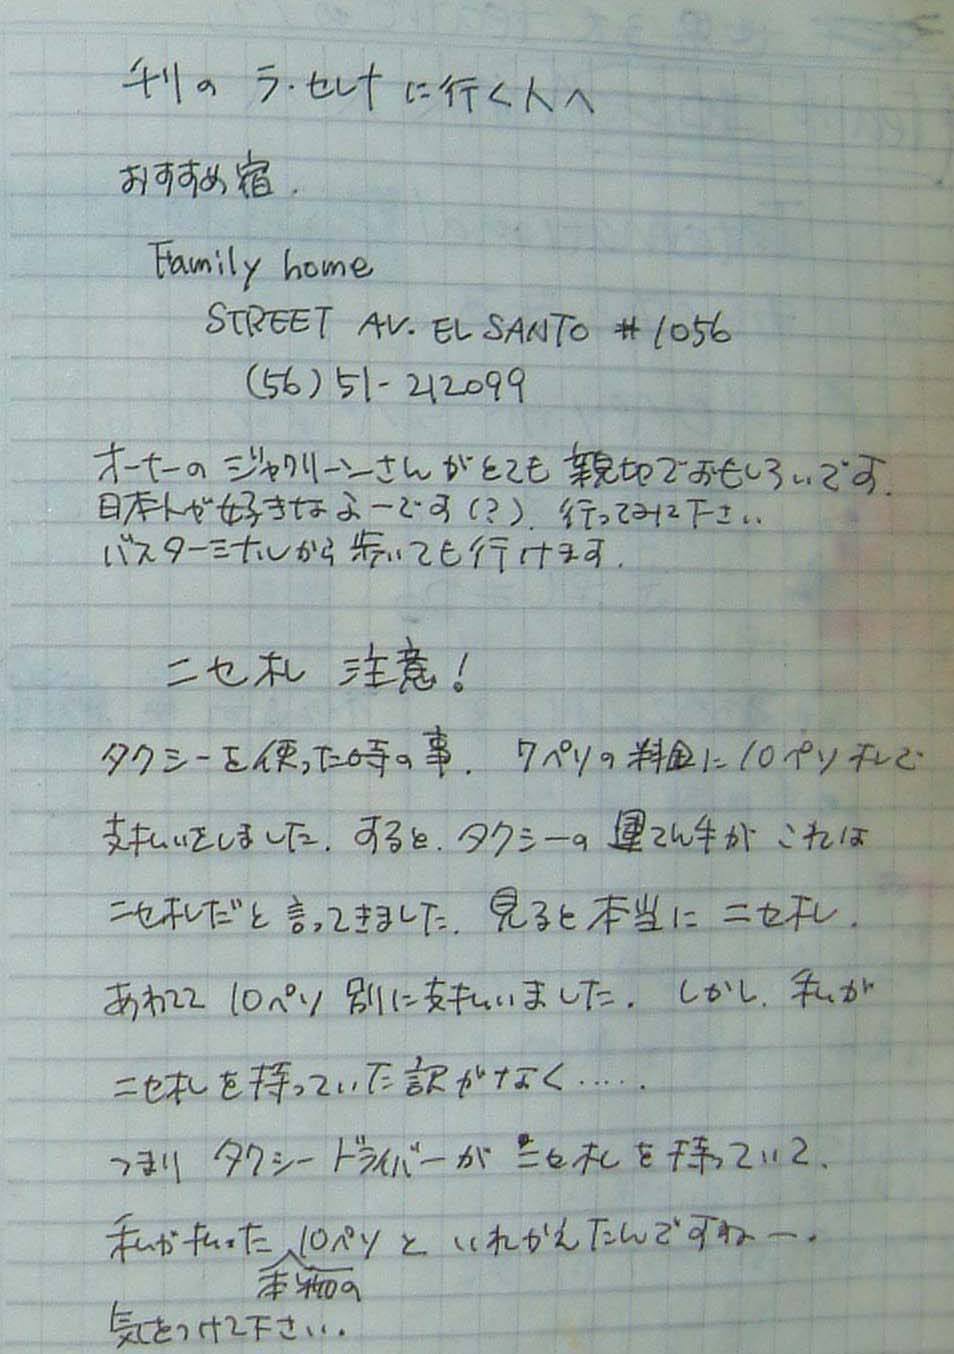 チリの ラ・セレナに行く人へ
おすすめ宿.
Family home
STREET AV. EL SANTO #1056
(56) 51-212099
オーナーの ジャクリーンさんがとても親切でおもしろいです.
日本人が好きなよーです(?). 行ってみて下さい
バスターミナルから歩いても行けます.
ニセ札 注意!
タクシーを使った時の事. 7ペソの料金に10ペソ札で
支払いをしました. すると. タクシーの運てん手がこれは
ニセ札だと言ってきました. 見ると本当にニセ札.
あわてて10ペソ別に支払いました. しかし. 私が
ニセ札を持っていた訳がなく.....
つまりタクシードライバーがニセ札を持っていて.
私が払った10ペソといれかえたんですねー.
本物の
気をつけて下さい.